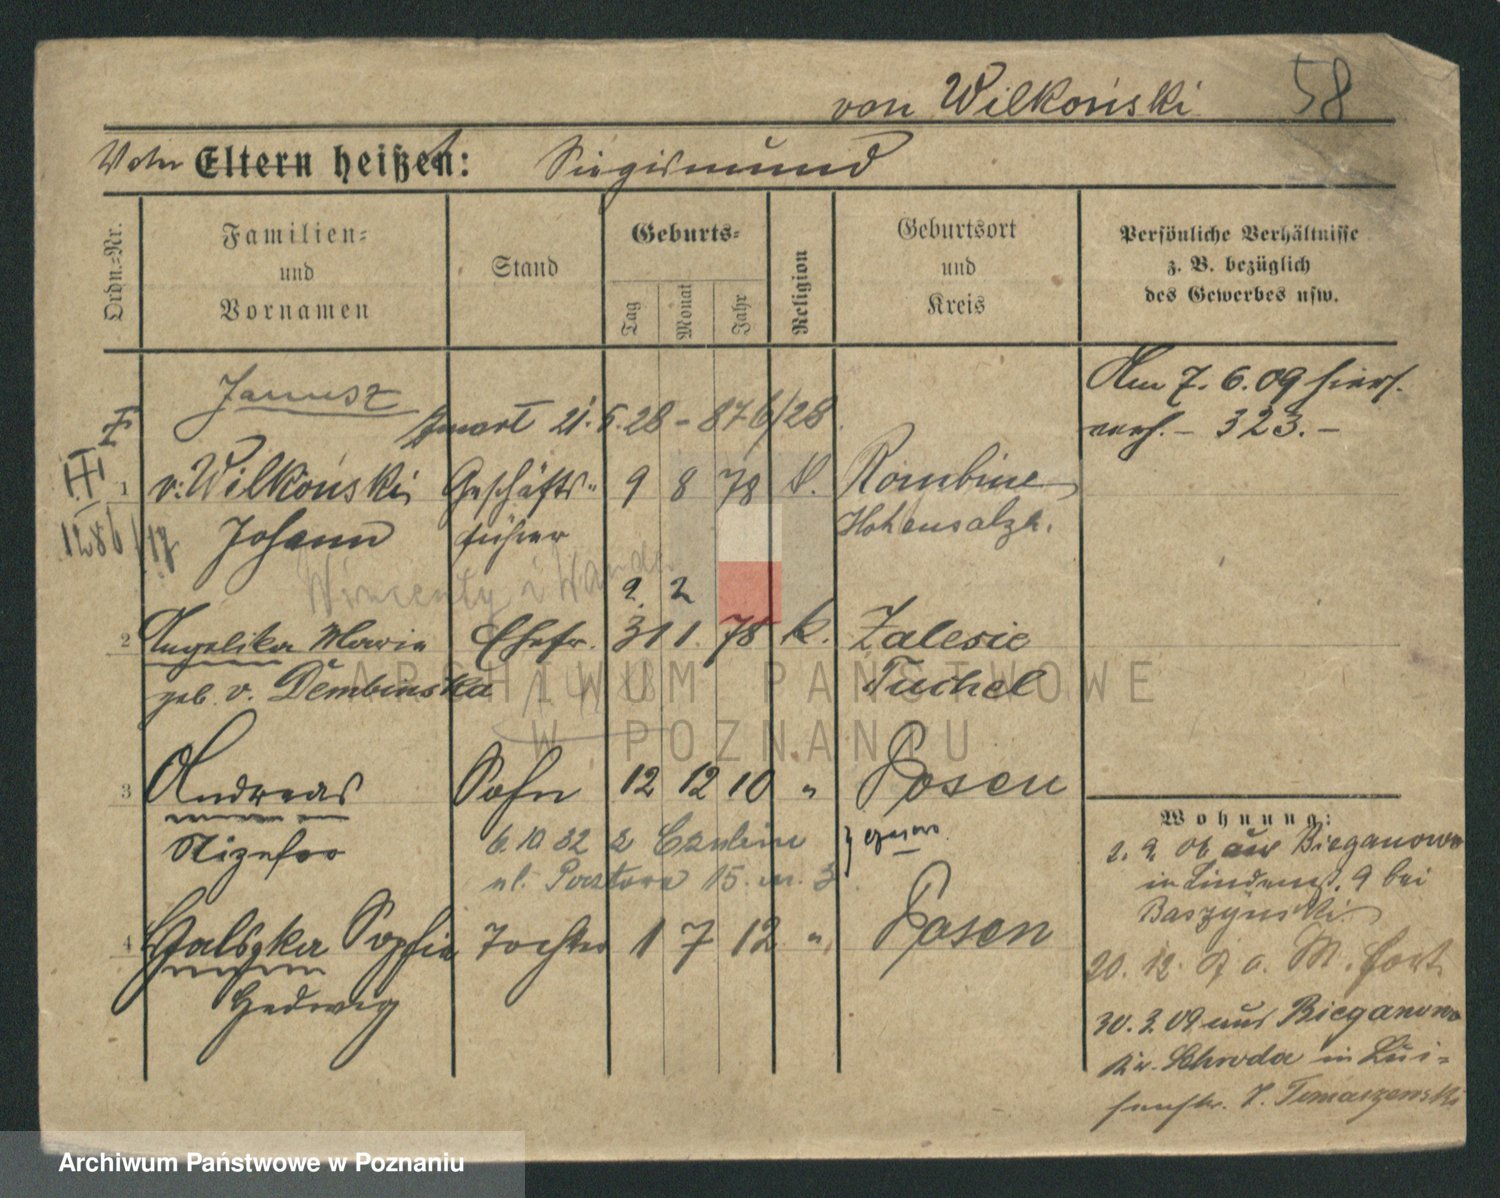 von Wilkoński 58
Eltern heißen: Siegismund
Ordn.=Nr.
Familien=
und
Vornamen
Stand
Geburts=
Tag
Monat
Jahr
Religion
Geburtsort
und
Kreis
Persönliche Verhältnisse
z. B. bezüglich
des Gewerbes usw.
Janusz
21. 5. 28 - 876/28
Am 7. 6. 09
323.-
1286/17
1 v. Wilkoński Geschäfts- 9 8 78 k. Rombino
Johann führer Hohensalza.
Wincenty i Wanda
2. 2
2 Angelika Maria Ehefr. 31 1. 78 k. Zalesie
geb. v. Dembinska Tuchel
3 Andreas Sohn 12 12 10 " Posen
6. 10 32 z
ul. 15. m. 3
4 Sophie Tochter 1 7 12 " Posen
Hedwig
Wohnung:
2. 9. 06 aus Bieganowo
in Lindenst. 9 bei
Baszynski
20. 12. 07 a. M. fort
30. 3. 09 aus Bieganowo
Kr. Schroda in Lui-
senstr. 7. Tomaszewski
ARCHIWUM PAŃSTWOWE
W POZNANIU
Archiwum Państwowe w Poznaniu